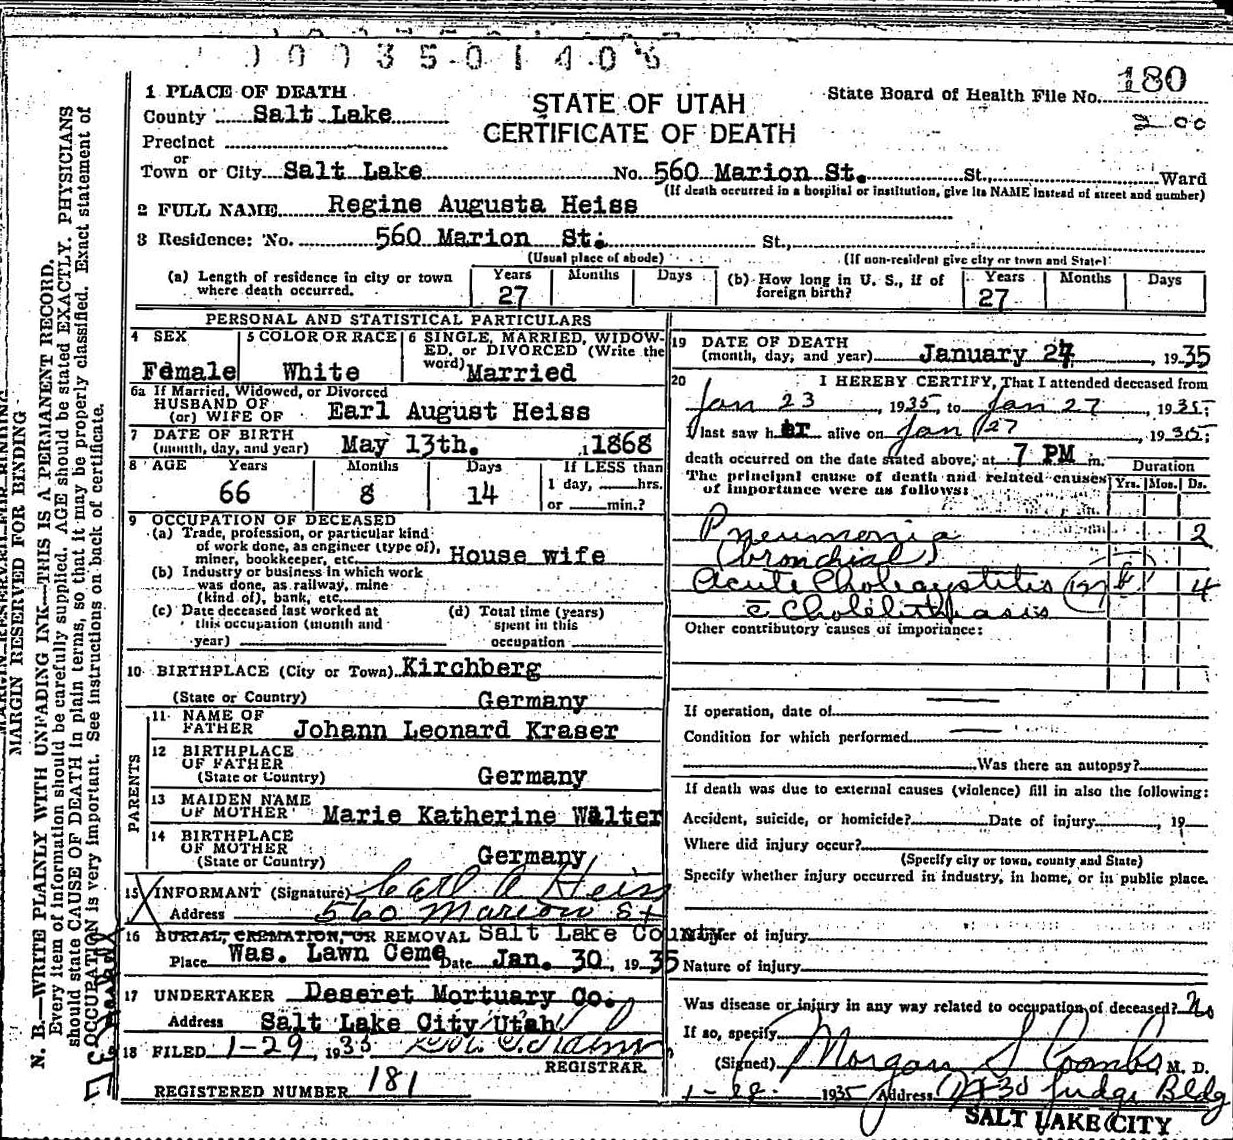 10035.01406
180
STATE OF UTAH
CERTIFICATE OF DEATH
State Board of Health File No.
1 PLACE OF DEATH
County Salt Lake
Precinct
or
Town or City Salt Lake No. 560 Marion St. St., Ward
(If death occurred in a hospital or institution, give its NAME instead of street and number)
2 FULL NAME Regine Augusta Heiss
3 Residence: No. 560 Marion St. St.,
(Usual place of abode) (If non-resident give city or town and State)
(a) Length of residence in city or town where death occurred. Years 27 Months Days
(b) How long in U. S., if of foreign birth? Years 27 Months Days
PERSONAL AND STATISTICAL PARTICULARS
4 SEX Female
5 COLOR OR RACE White
6 SINGLE, MARRIED, WIDOWED, or DIVORCED (Write the word) Married
6a If Married, Widowed, or Divorced
HUSBAND OF
(or) WIFE OF Earl August Heiss
7 DATE OF BIRTH
(month, day, and year) May 13th. , 1868
8 AGE Years 66 Months 8 Days 14
If LESS than
1 day, hrs.
or min.?
9 OCCUPATION OF DECEASED
(a) Trade, profession, or particular kind
of work done, as engineer (type of),
miner, bookkeeper, etc. House wife
(b) Industry or business in which work
was done, as railway, mine
(kind of), bank, etc.
(c) Date deceased last worked at
this occupation (month and
year)
(d) Total time (years)
spent in this
occupation
10 BIRTHPLACE (City or Town) Kirchberg
(State or Country) Germany
PARENTS
11 NAME OF
FATHER Johann Leonard Kraser
12 BIRTHPLACE
OF FATHER
(State or Country) Germany
13 MAIDEN NAME
OF MOTHER Marie Katherine Walter
14 BIRTHPLACE
OF MOTHER
(State or Country) Germany
15 INFORMANT (Signature) Carl A Heiss
Address 560 Marion St
16 BURIAL, CREMATION, OR REMOVAL Salt Lake County
Place Was. Lawn Ceme Date Jan. 30, 1935
17 UNDERTAKER Deseret Mortuary Co.
Address Salt Lake City Utah
18 FILED 1-29, 1935
REGISTRAR
REGISTERED NUMBER 181
19 DATE OF DEATH
(month, day, and year) January 27, 1935
20 I HEREBY CERTIFY, That I attended deceased from
Jan 23, 1935, to Jan 27, 1935;
I last saw her alive on Jan 27, 1935;
death occurred on the date stated above, at 7 PM m.
The principal cause of death and related causes
of importance were as follows:
Duration
Yrs. Mos. Ds.
Pneumonia 2
(bronchial)
Acute Cholecystitis 4
c̄ Cholelithiasis
Other contributory causes of importance:
If operation, date of
Condition for which performed
Was there an autopsy?
If death was due to external causes (violence) fill in also the following:
Accident, suicide, or homicide? Date of injury , 19
Where did injury occur?
(Specify city or town, county and State)
Specify whether injury occurred in industry, in home, or in public place.
Manner of injury
Nature of injury
Was disease or injury in any way related to occupation of deceased? No
If so, specify
(Signed) Morgan S Coombs M. D.
1935 Address Judge Bldg
SALT LAKE CITY
MARGIN RESERVED FOR BINDING
N. B.—WRITE PLAINLY WITH UNFADING INK—THIS IS A PERMANENT RECORD.
Every item of information should be carefully supplied. AGE should be stated EXACTLY. PHYSICIANS
should state CAUSE OF DEATH in plain terms, so that it may be properly classified. Exact statement of
OCCUPATION is very important. See instructions on back of certificate.